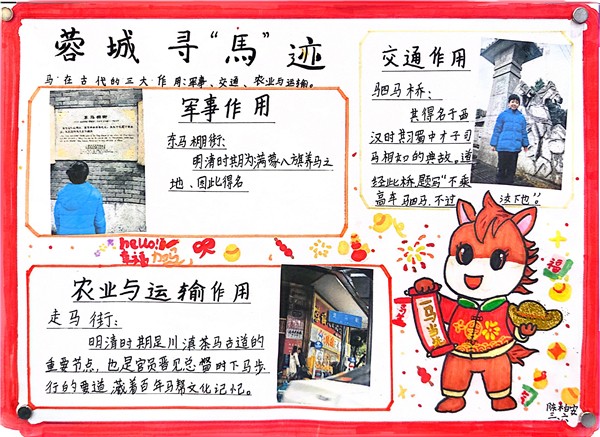 蓉城寻“馬”迹
马在古代的三大作用:军事、交通、农业与运输。
军事作用
东马棚街:
明清时期为满蒙八旗养马之
地、因此得名
交通作用
驷马桥:
其得名于西
汉时期蜀中才子司
马相如的典故。道
经此桥题写“不乘
高车驷马,不过汝下也”。
hello!
幸福 Day
农业与运输作用
走马街:
明清时期是川滇茶马古道的
重要节点,也是官员晋见总督时下马步
行的要道,藏着百年马帮文化记忆。
一马当先
福
三.六